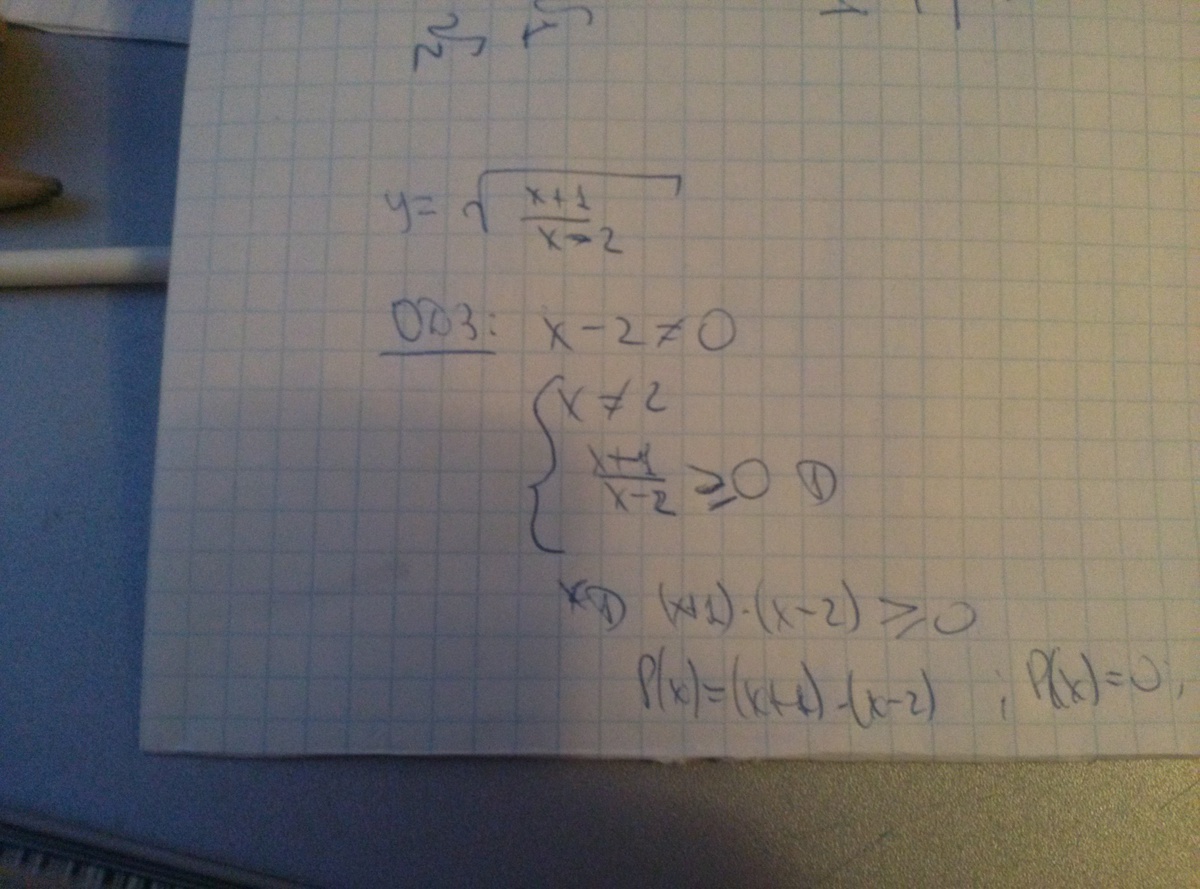 y = √((x+1)/(x-2))
ОДЗ: x - 2 ≠ 0
{ x ≠ 2
(x+1)/(x-2) ≥ 0 ①
① (x+1)·(x-2) ≥ 0
P(x) = (x+1)·(x-2) ; P(x) = 0;